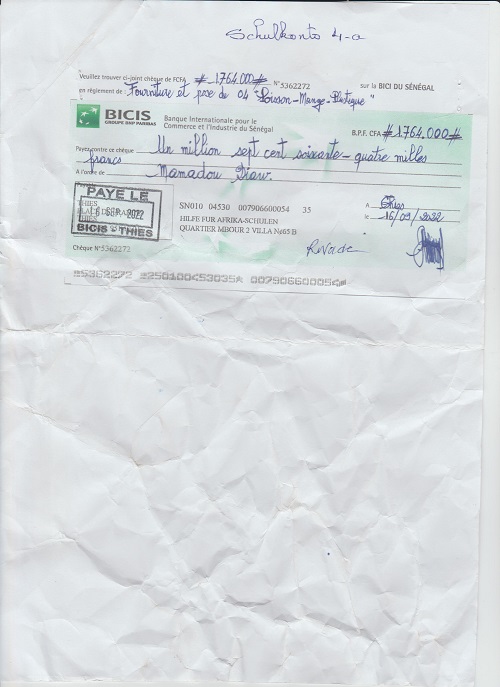 Schulkonto 4-a
Veuillez trouver ci-joint chèque de FCFA # 1.764.000 # N°5362272 sur la BICI DU SÉNÉGAL
en règlement de : Fourniture et pose de 04 "Poisson-Mange-Plastique"
BICIS
GROUPE BNP PARIBAS
Banque Internationale pour le
Commerce et l'industrie du Sénégal
B.P.F. CFA #1764.000#
Payez contre ce chèque Un million sept cent soixante-quatre milles
francs
A l'ordre de Mamadou Diaw.
PAYE LE
THIES
16 SEP. 2022
BICIS THIES
SN010 04530 007906600054 35
HILFE FUR AFRIKA-SCHULEN
QUARTIER MBOUR 2 VILLA N°65 B
A Thies
le 16/09/2022
Chèque N°5362272